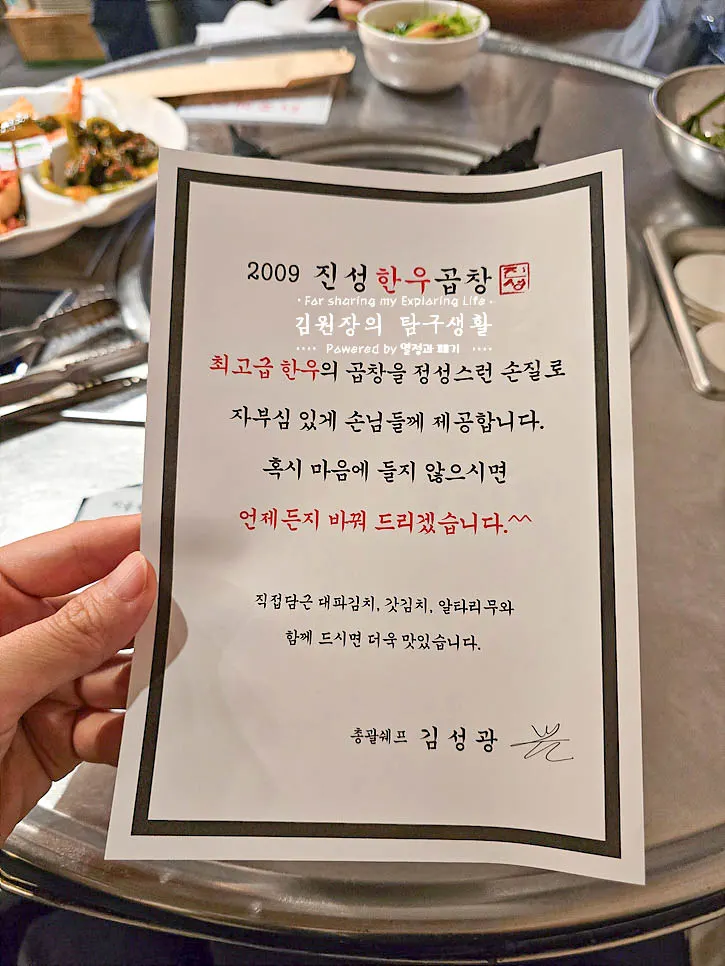 2009 진성한우곱창 진성
· For sharing my Exploring Life ·
김원장의 탐구생활
···· Powered by 열정과 패기 ····
최고급 한우의 곱창을 정성스런 손질로
자부심 있게 손님들께 제공합니다.
혹시 마음에 들지 않으시면
언제든지 바꿔 드리겠습니다.^^
직접담근 대파김치, 갓김치, 알타리무와
함께 드시면 더욱 맛있습니다.
총괄쉐프 김성광